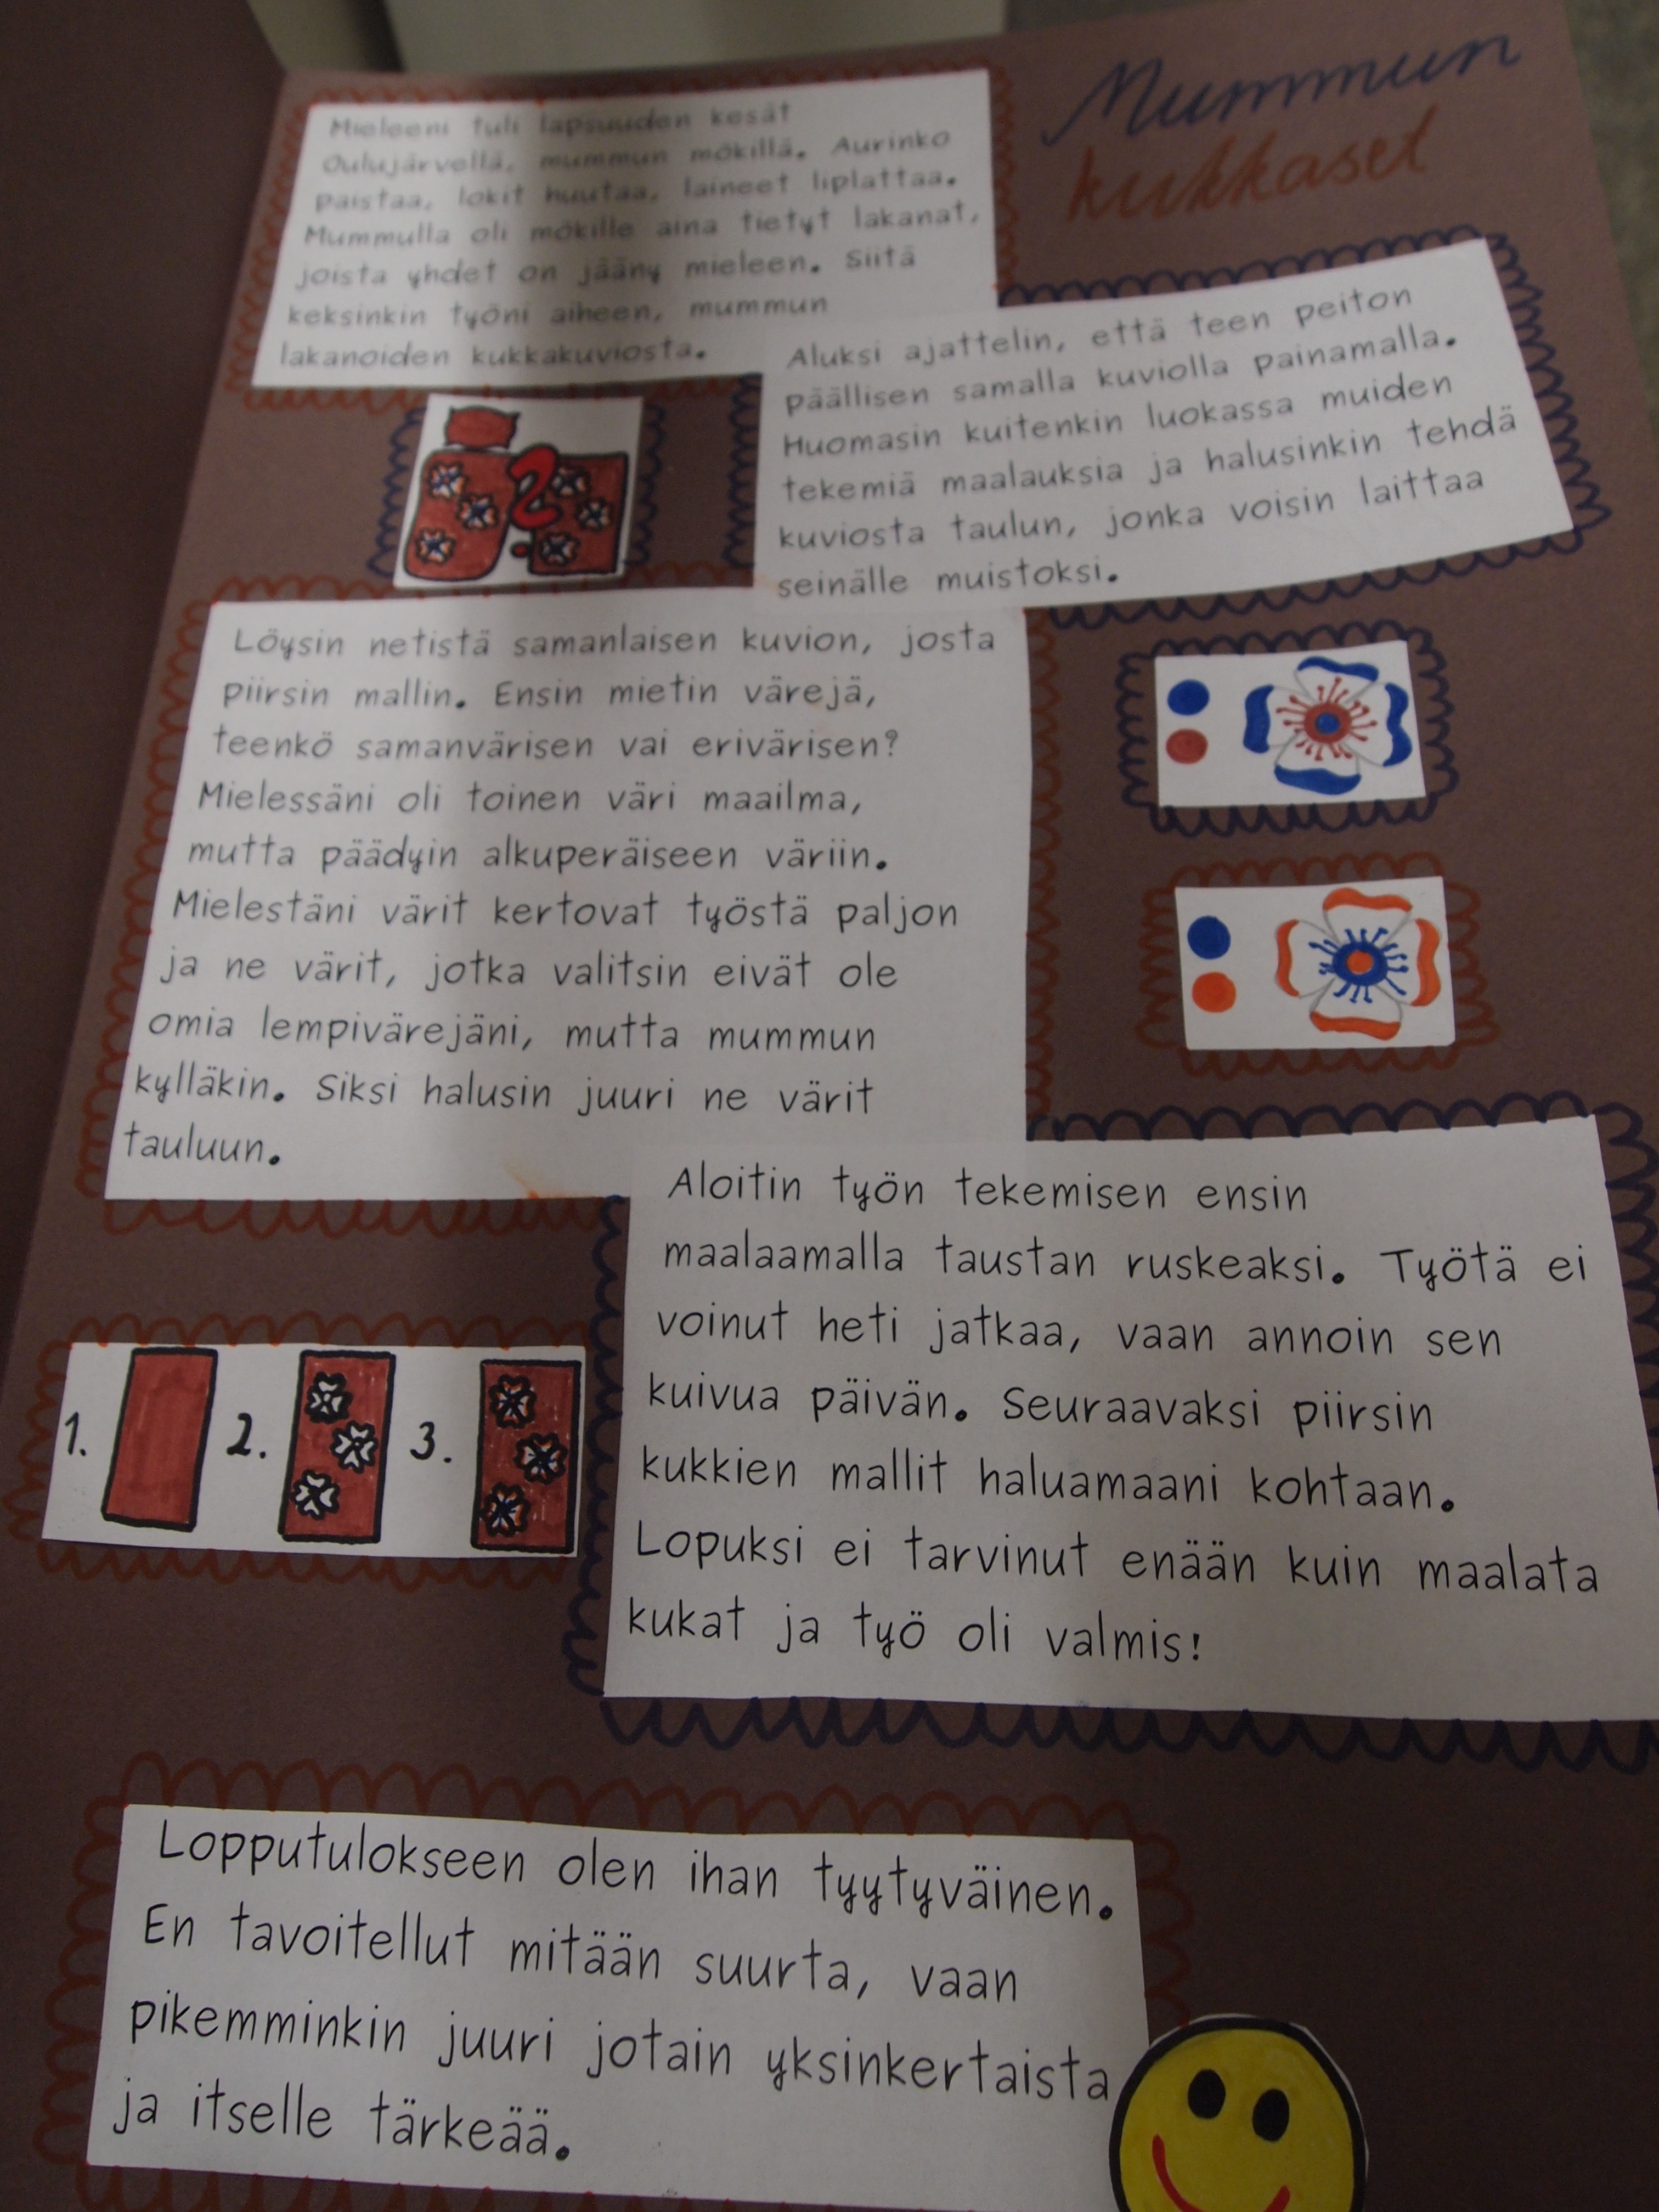 Mummun
kukkaset
Mieleeni tuli lapsuuden kesät
Oulujärvellä, mummun mökillä. Aurinko
paistaa, lokit huutaa, laineet liplattaa.
Mummulla oli mökille aina tietyt lakanat,
joista yhdet on jääny mieleen. Siitä
keksinkin työni aiheen, mummun
lakanoiden kukkakuviosta.
Aluksi ajattelin, että teen peiton
päällisen samalla kuviolla painamalla.
Huomasin kuitenkin luokassa muiden
tekemiä maalauksia ja halusinkin tehdä
kuviosta taulun, jonka voisin laittaa
seinälle muistoksi.
?
Löysin netistä samanlaisen kuvion, josta
piirsin mallin. Ensin mietin värejä,
teenkö samanvärisen vai erivärisen?
Mielessäni oli toinen väri maailma,
mutta päädyin alkuperäiseen väriin.
Mielestäni värit kertovat työstä paljon
ja ne värit, jotka valitsin eivät ole
omia lempivärejäni, mutta mummun
kylläkin. Siksi halusin juuri ne värit
tauluun.
Aloitin työn tekemisen ensin
maalaamalla taustan ruskeaksi. Työtä ei
voinut heti jatkaa, vaan annoin sen
kuivua päivän. Seuraavaksi piirsin
kukkien mallit haluamaani kohtaan.
Lopuksi ei tarvinut enään kuin maalata
kukat ja työ oli valmis!
1. 2. 3.
Lopputulokseen olen ihan tyytyväinen.
En tavoitellut mitään suurta, vaan
pikemminkin juuri jotain yksinkertaista
ja itselle tärkeää.